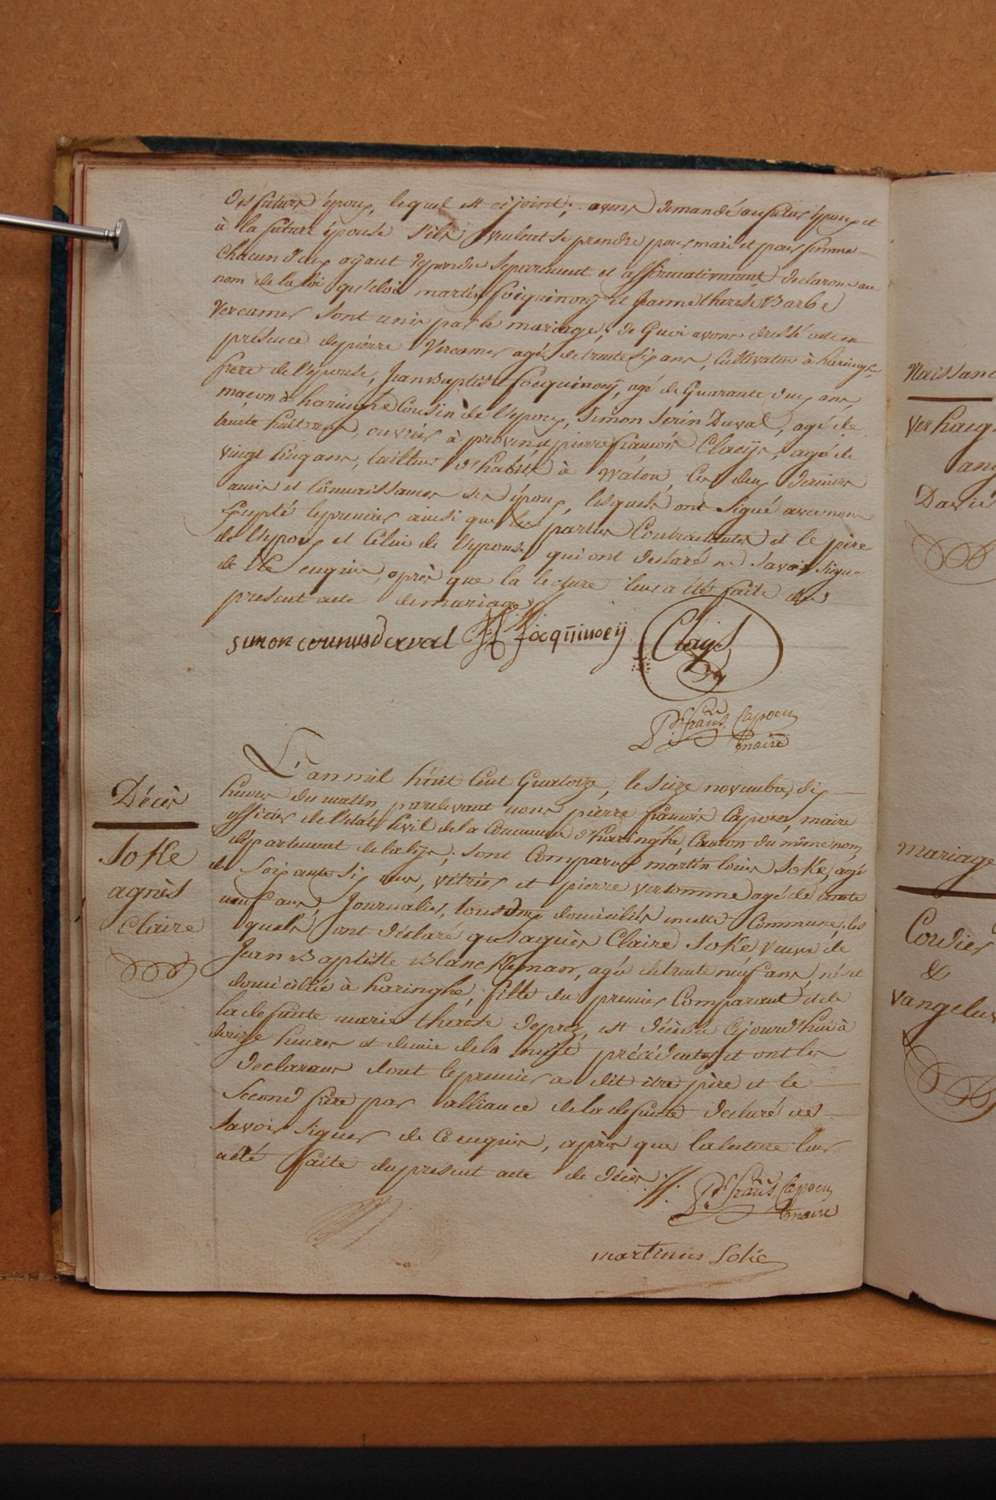 des futurs époux, lequel est ci joint; avons demandé au futur époux et
à la future épouse s'ils veulent se prendre pour mari et pour femme
chacun d'eux ayant répondu séparément et affirmativement, declarons au
nom de la loi que martin focquinoey et Jeanne therese Barbe
Vercamer sont unis par le mariage; de quoi avons dressé acte en
presence de pierre Vercamer agé de trente six ans, cultivateur à haringhe
frere de l'épouse, Jean Baptiste focquinoey, agé de quarante deux ans,
maçon à haringhe cousin de l'époux, Simon Duval, agé de
trente huit ans, ouvrier à proven et pierre françois Claeys, agé de
vingt cinq ans, tailleur d'habits à Watou, les deux derniers
amis et connaissances des époux, lesquels ont signé avec nous
excepté le premier ainsi que les parties contractantes et le père
de l'époux et celui de l'épouse qui ont declaré ne savoir signer
de ce enquis, après que la lecture leur a été faite du
present acte de mariage
simon derval focqinoeij Claijs
P.re franis Capoen
maire
Décès
Soke
agnès
Claire
L'an mil huit cent quatorze, le seize novembre, dix
heures du matin, pardevant nous pierre françois Capoen, maire
officier de l'état civil de la Commune d'haringhe, Canton du même nom,
département de la lys; sont comparus martin louis Soke, agé
de soixante six ans, vitrier et pierre vertomme agé de trente
neuf ans, Journalier, tous deux domiciliés en cette Commune, les
quels ont déclaré que agnès Claire Soke veuve de
Jean Baptiste Blanckeman, agée de trente neuf ans, née et
domiciliée à haringhe, fille du premier comparant et de
la defunte marie therese deprez, est décédée ce jourd'hui à
heures et demie de la nuit précédente, et ont les
déclarans dont le premier a dit être père et le
second frère par alliance de la defunte declaré
savoir signer de ce enquis, après que la lecture leur
a été faite du present acte de décès.
P.re franis Capoen
maire
martinus Sokè
Naissance
verhaeg
Davie
mariage
Cordier
&
vangeluw